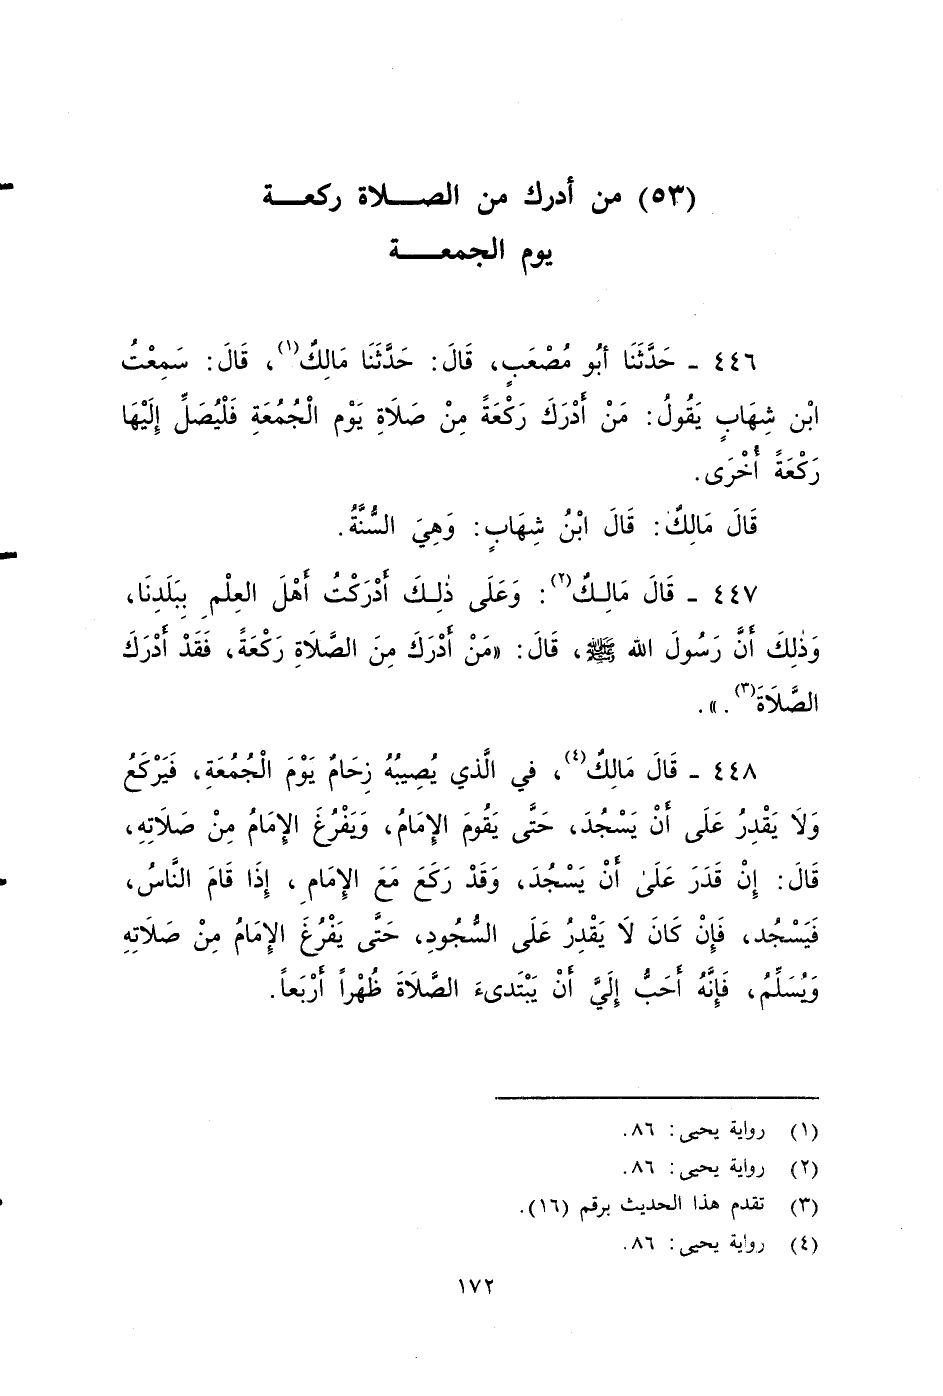 (٥٣) من أدرك من الصلاة ركعة
يوم الجمعة
٤٤٦ - حَدَّثَنَا أبُو مُصْعَبٍ، قَالَ: حَدَّثَنَا مَالِكٌ(١)، قَالَ: سَمِعْتُ
ابْن شِهَابٍ يَقُولُ: مَنْ أَدْرَكَ رَكْعَةً مِنْ صَلَاةِ يَوْم الْجُمُعَةِ فَلْيُصَلِّ إِلَيْهَا
رَكْعَةً أُخْرَى.
قَالَ مَالِكٌ: قَالَ ابْنُ شِهَابٍ: وَهِيَ السُّنَّةُ.
٤٤٧ - قَالَ مَالِكٌ(٢): وَعَلَى ذٰلِكَ أَدْرَكْتُ أَهْلَ العِلْمِ بِبَلَدِنَا،
وَذٰلِكَ أَنَّ رَسُولَ الله ﷺ، قَالَ: «مَنْ أَدْرَكَ مِنَ الصَّلَاةِ رَكْعَةً، فَقَدْ أَدْرَكَ
الصَّلَاةَ(٣).».
٤٤٨ - قَالَ مَالِكٌ(٤)، في الَّذي يُصِيبُهُ زِحَامٌ يَوْمَ الْجُمُعَةِ، فَيَرْكَعُ
وَلَا يَقْدِرُ عَلَى أَنْ يَسْجُدَ، حَتَّى يَقُومَ الإِمَامُ، وَيَفْرُغَ الإِمَامُ مِنْ صَلَاتِهِ،
قَالَ: إِنْ قَدَرَ عَلَىٰ أَنْ يَسْجُدَ، وَقَدْ رَكَعَ مَعَ الإِمَامِ، إِذَا قَامَ النَّاسُ،
فَيَسْجُد، فَإِنْ كَانَ لَا يَقْدِرُ عَلَى السُّجُودِ، حَتَّى يَفْرُغَ الإِمَامُ مِنْ صَلَاتِهِ
وَيُسَلِّمُ، فَإِنَّهُ أَحَبُّ إِلَيَّ أَنْ يَبْتَدىءَ الصَّلَاةَ ظُهْراً أَرْبَعاً.
(١) رواية يحيى: ٨٦.
(٢) رواية يحيى: ٨٦.
(٣) تقدم هذا الحديث برقم (١٦).
(٤) رواية يحيى: ٨٦.
١٧٢